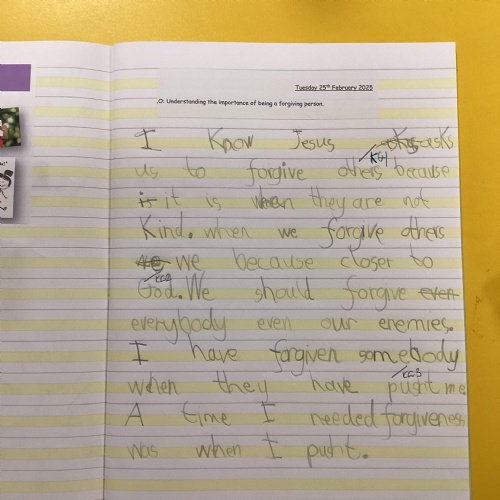 Tuesday 25th February 2025
.O: Understanding the importance of being a forgiving person.
I Know Jesus asks
KQ1
us to forgive others because
it is when they are not
Kind. when we forgive others
we because closer to
KQ2
God. We should forgive even
everybody even our enemies.
I have forgiven somebody
KQ3
when they have pusht me
A time I needed forgiveness
was when I pusht.